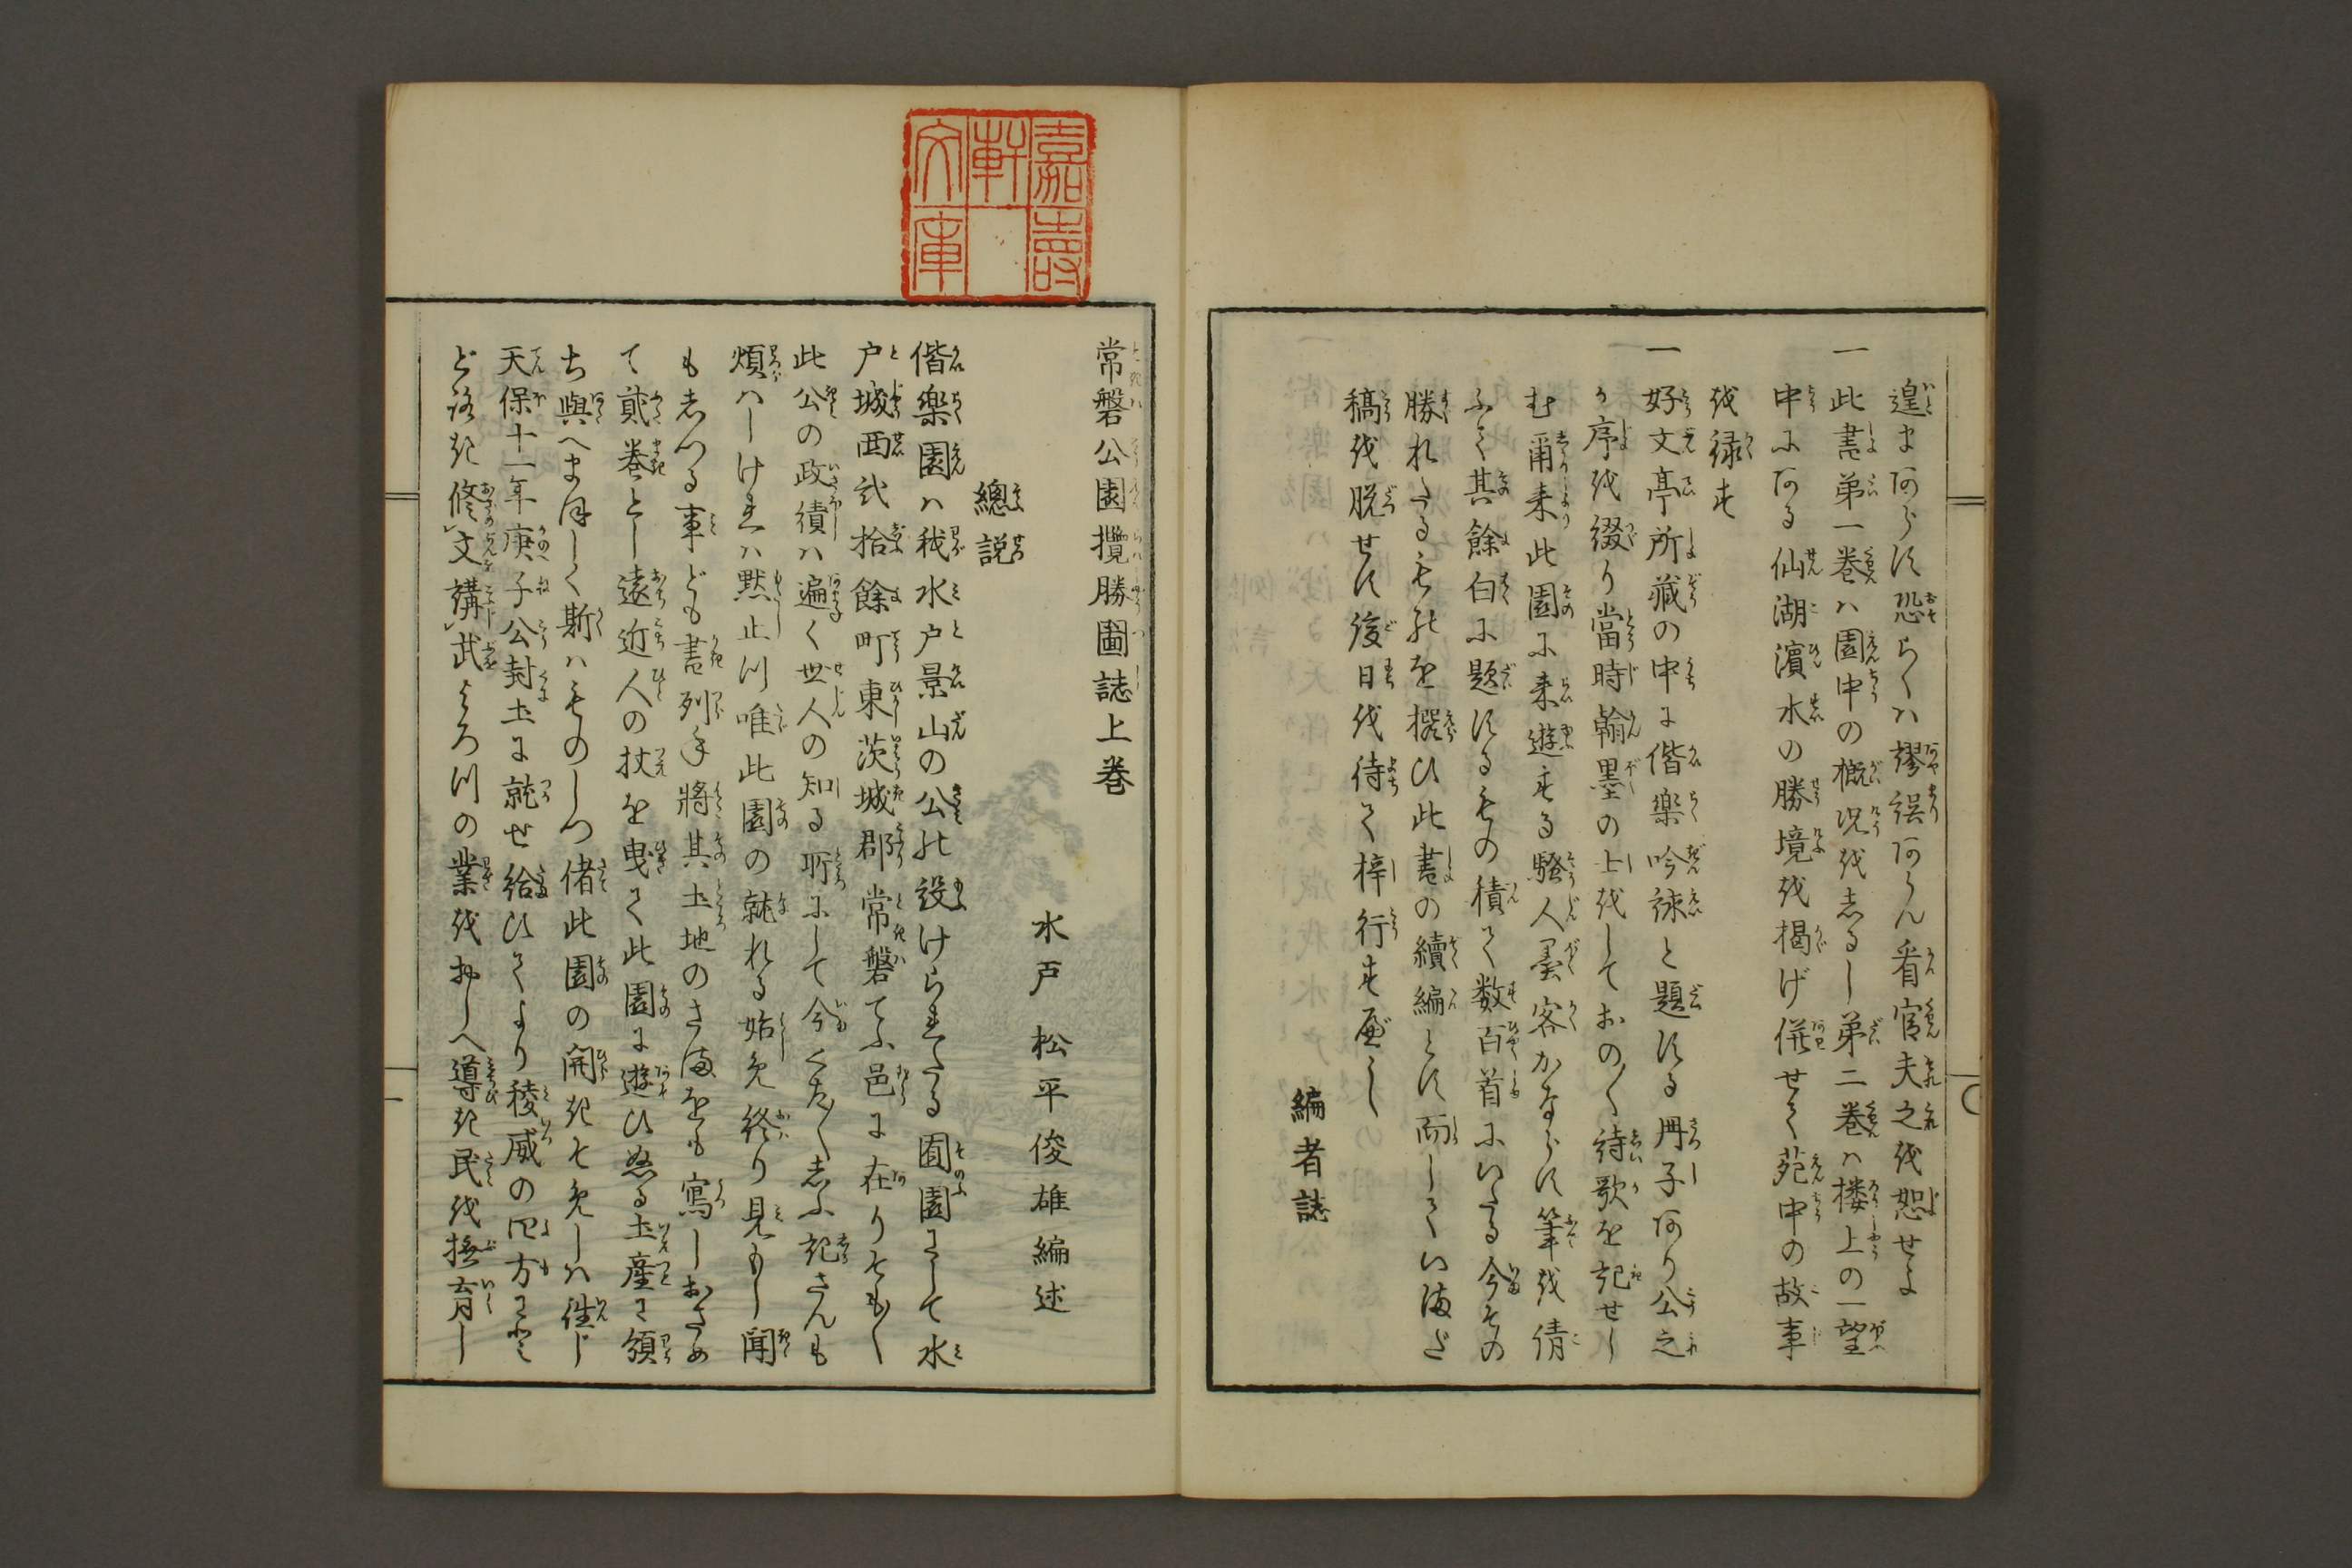 遑まあらす恐らくハ謬誤あらん看官夫之を恕せよ
一此書第一巻ハ園中の概况をしるし第二巻ハ楼上の一望
中にある仙湖濱水の勝境を掲げ併せて苑中の故事
を録す
一好文亭所藏の中に偕楽吟詠と題する冊子あり公之
か序を綴り當時翰墨の士をしておの〱詩歌を記せし
む爾来此園に来遊する騒人墨客かならす筆を倩
ふて其餘白に題するもの積て数百首にいたる今その
勝れたるものを撰ひ此書の續編とす而していまだ
稿を脱せす後日を待て梓行すべし
編者誌
嘉壽軒文庫
常磐公園攬勝圖誌上巻
水戸 松平俊雄編述
總説
偕楽園ハ我水戸景山の公の設けられたる囿園にして水
戸城西弐拾餘町東茨城郡常磐てふ邑に在りそも〱
此公の政績ハ遍く世人の知る所にして今くだ〱しふ記さんも
煩ハしけれハ黙止つ唯此園の就れる始め終り見もし聞
もしつる事ども書列ね將其土地のさまをも寫しおさめ
て貳巻とし遠近人の杖を曳て此園に遊ひぬる土産に頒
ち與へまほしく斯ハものしつ偖此園の開きそめしハ往じ
天保十一年庚子公封土に就せ給ひてより稜威の四方に
ど修文講武よろつの業ををしへ導き民を撫育し